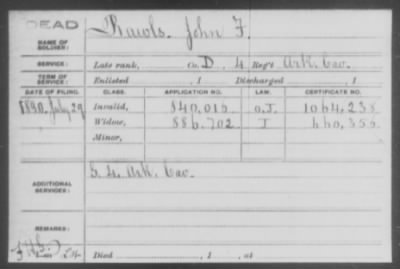 DEAD
NAME OF SOLDIER: Rawls. John F.
SERVICE: Late rank, Co. D, 4 Reg't Ark. Cav.
TERM OF SERVICE: Enlisted , 1 Discharged , 1
DATE OF FILING. CLASS. APPLICATION NO. LAW. CERTIFICATE NO.
1890. July 29 Invalid, 840,015 O.I. 1064,238
Widow, 886,702 I 660,356
Minor,
ADDITIONAL SERVICES: Ark. Cav.
REMARKS:
Died , 1 , at